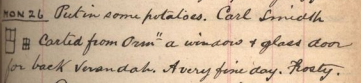 MON 26 Put in some potatoes. Carl Smidth
Carted from Orm" a window & glass door
for back verandah. A very fine day. Frosty